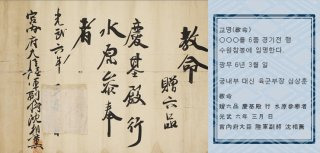 敎命
贈六品
慶基殿行
水原參奉
者
光武六年
宮內府大臣陸軍副將沈相薰
교명(敎命)
○○○를 6품 경기전 행
수원참봉에 임명한다.
광무 6년 3월 일
궁내부 대신 육군부장 심상훈
敎命
贈六品 慶基殿 行 水原參奉者
光武 六年 三月 日
宮內府大臣 陸軍副將 沈相薰